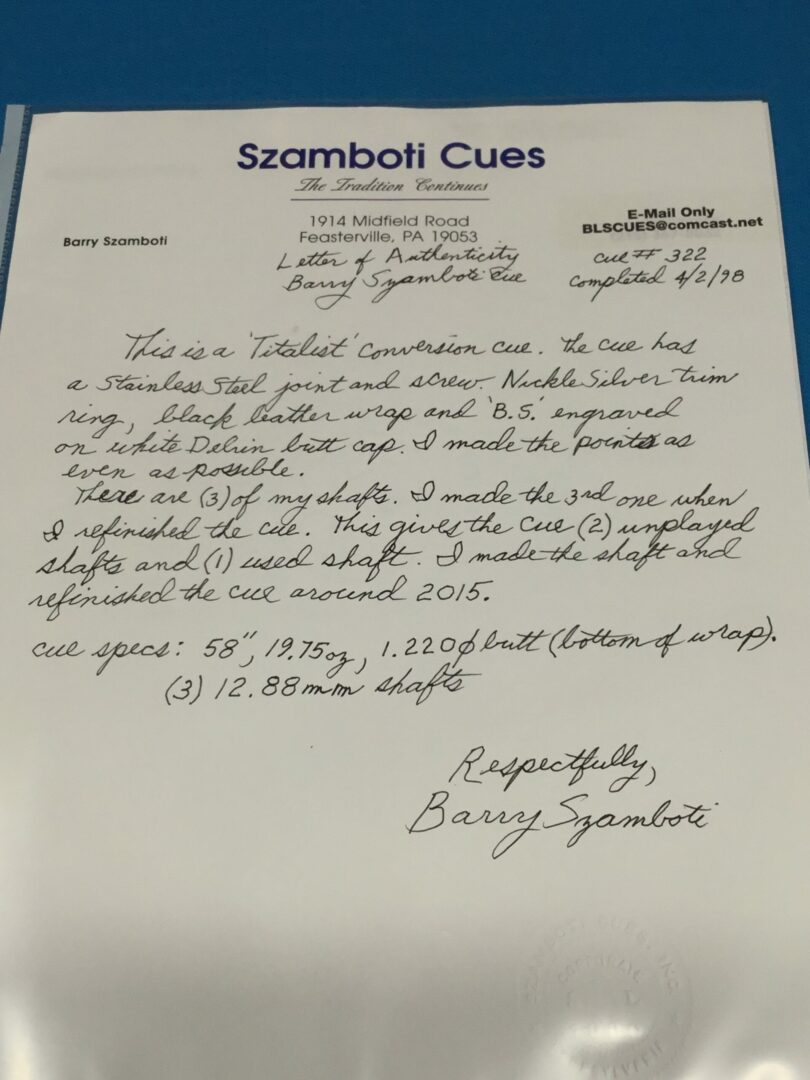 Szamboti Cues
The Tradition Continues
1914 Midfield Road
Feasterville, PA 19053
Barry Szamboti
E-Mail Only
BLSCUES@comcast.net
Letter of Authenticity
Barry Szamboti Cue
cue # 322
completed 4/2/98
This is a 'Titalist' conversion cue. The cue has
a Stainless Steel joint and screw. Nickle Silver trim
ring, black leather wrap and 'B.S.' engraved
on white Delrin butt cap. I made the points as
even as possible.
There are (3) of my shafts. I made the 3rd one when
I refinished the cue. This gives the cue (2) unplayed
shafts and (1) used shaft. I made the shaft and
refinished the cue around 2015.
cue specs: 58", 19.75oz, 1.220ϕ butt (bottom of wrap).
(3) 12.88mm shafts
Respectfully,
Barry Szamboti
SZAMBOTI CUES, INC.
CORPORATE